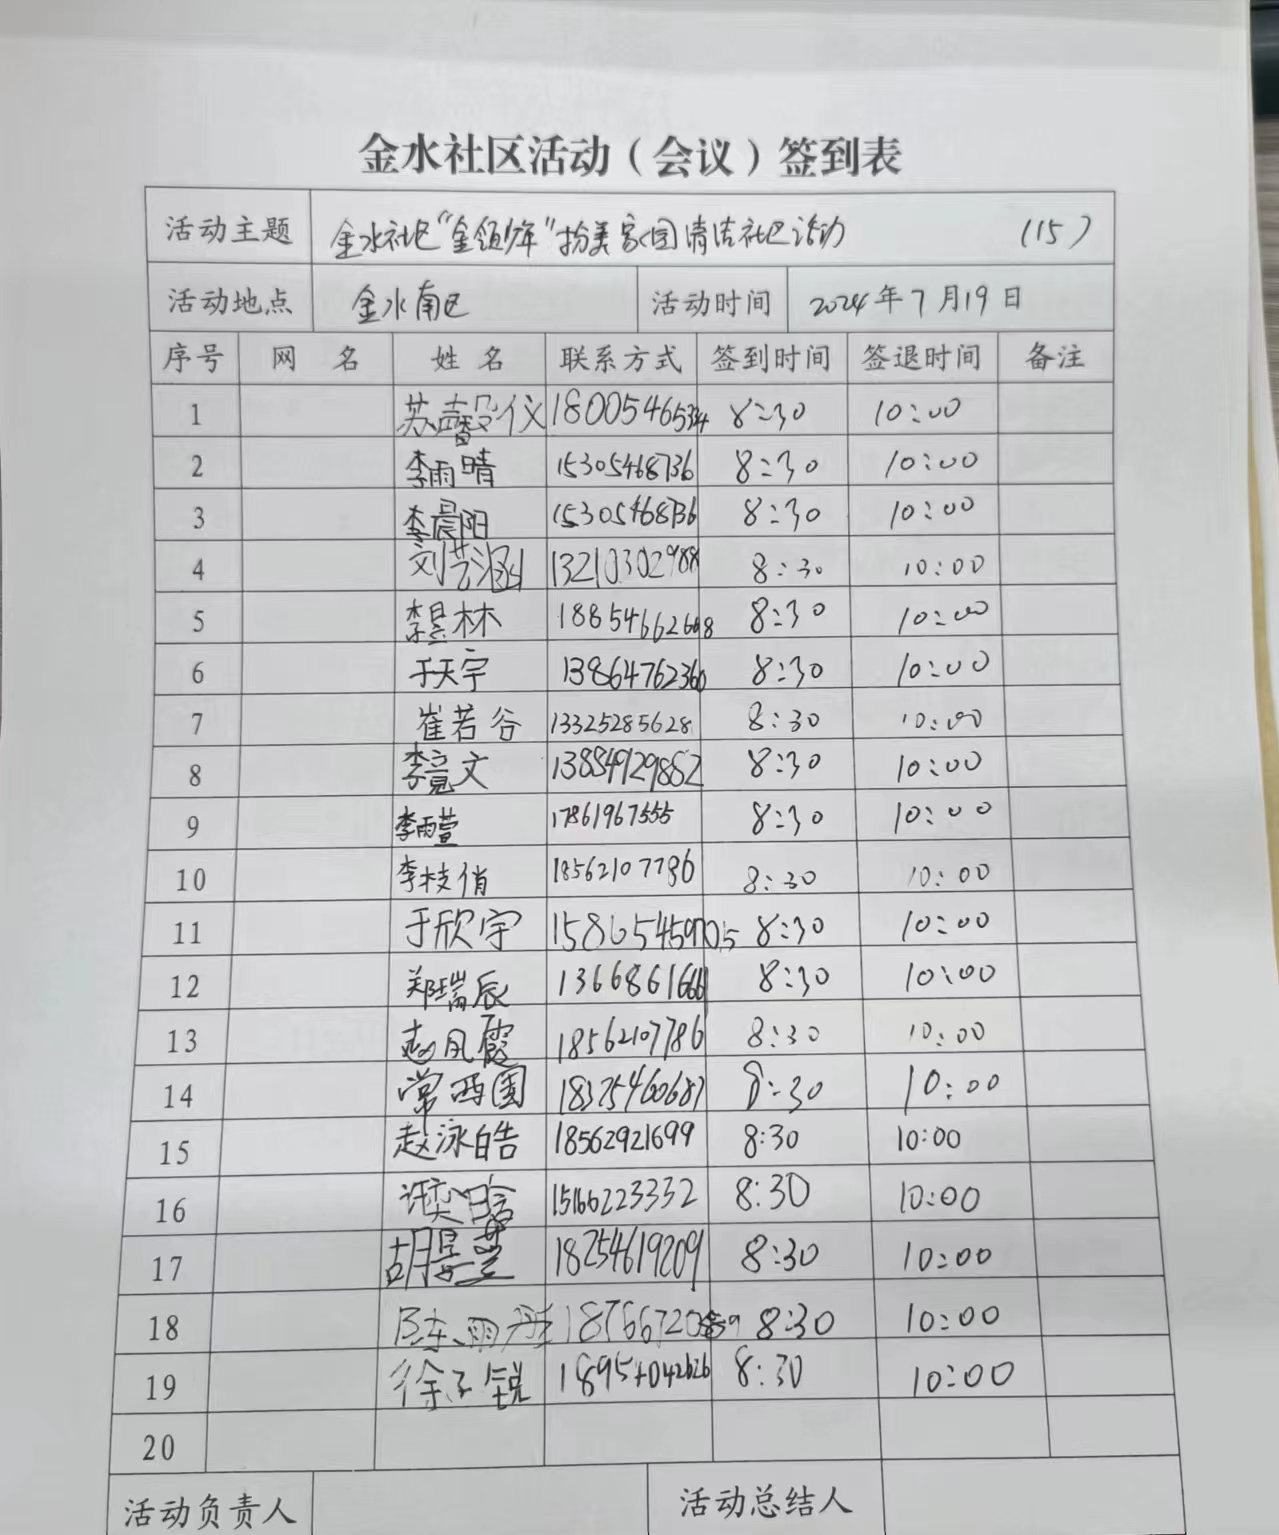 金水社区活动（会议）签到表
活动主题 金水社区“金领少年”扮美家园清洁社区活动 (15)
活动地点 金水南区 活动时间 2024年7月19日
序号 网 名 姓 名 联系方式 签到时间 签退时间 备注
1 苏馨仪 18005465334 8:30 10:00
2 李雨晴 15305468736 8:30 10:00
3 李晨阳 15305468736 8:30 10:00
4 刘艺涵 13210302988 8:30 10:00
5 李昱林 18854662608 8:30 10:00
6 于天宇 13864762360 8:30 10:00
7 崔若谷 13325285628 8:30 10:00
8 李竟文 13884929852 8:30 10:00
9 李雨萱 17861967555 8:30 10:00
10 李枝俏 18562107786 8:30 10:00
11 于欣宇 15865459705 8:30 10:00
12 郑瑞辰 13668616661 8:30 10:00
13 孟凤霞 18562107786 8:30 10:00
14 常西国 18375460687 8:30 10:00
15 赵泳皓 18562921699 8:30 10:00
16 15166223332 8:30 10:00
17 胡景萱 18254619209 8:30 10:00
18 陈雨彤 8:30 10:00
19 徐子锐 18954042626 8:30 10:00
20
活动负责人 活动总结人